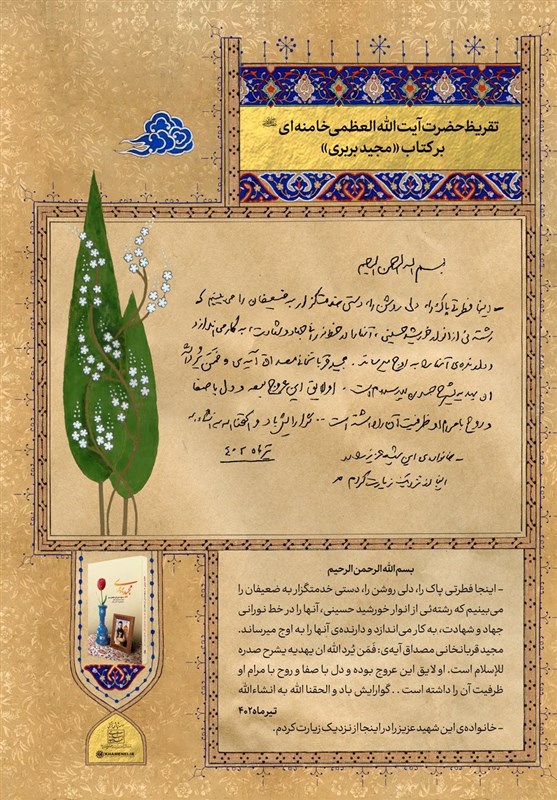 تقریظ حضرت آیت الله العظمی خامنه‌ای
بر کتاب «مجید بربری»
بسم الله الرحمن الرحیم
- اینجا فطرتی پاک را، دلی روشن را، دستی خدمتگزار به ضعیفان را می‌بینیم که
رشته‌ئی از انوار خورشید حسینی، آنها را در خط نورانی جهاد و شهادت، به کار می‌اندازد
و دارنده‌ی آنها را به اوج میرساند. مجید قربانخانی مصداق آیه‌ی: فمن یُرد الله
ان یهدیه یشرح صدره للإسلام است. او لایق این عروج بوده و دل با صفا
و روح با مرام او ظرفیت آن را داشته است . . گوارایش باد و الحقنا الله به انشاءالله
تیرماه ۴۰۲
- خانواده‌ی این شهید عزیز را در
اینجا از نزدیک زیارت کردم
بسم الله الرحمن الرحیم
- اینجا فطرتی پاک را، دلی روشن را، دستی خدمتگزار به ضعیفان را
می‌بینیم که رشته‌ئی از انوار خورشید حسینی، آنها را در خط نورانی
جهاد و شهادت، به کار می‌اندازد و دارنده‌ی آنها را به اوج میرساند.
مجید قربانخانی مصداق آیه‌ی: فمَن یُرد الله ان یهدیه یشرح صدره
للإسلام است. او لایق این عروج بوده و دل با صفا و روح با مرام او
ظرفیت آن را داشته است . . گوارایش باد و الحقنا الله به انشاءالله
تیرماه ۴۰۲
- خانواده‌ی این شهید عزیز را در اینجا از نزدیک زیارت کردم.
KHAMENEI.IR